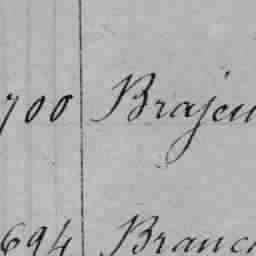 700 Brajeu
694 Branc